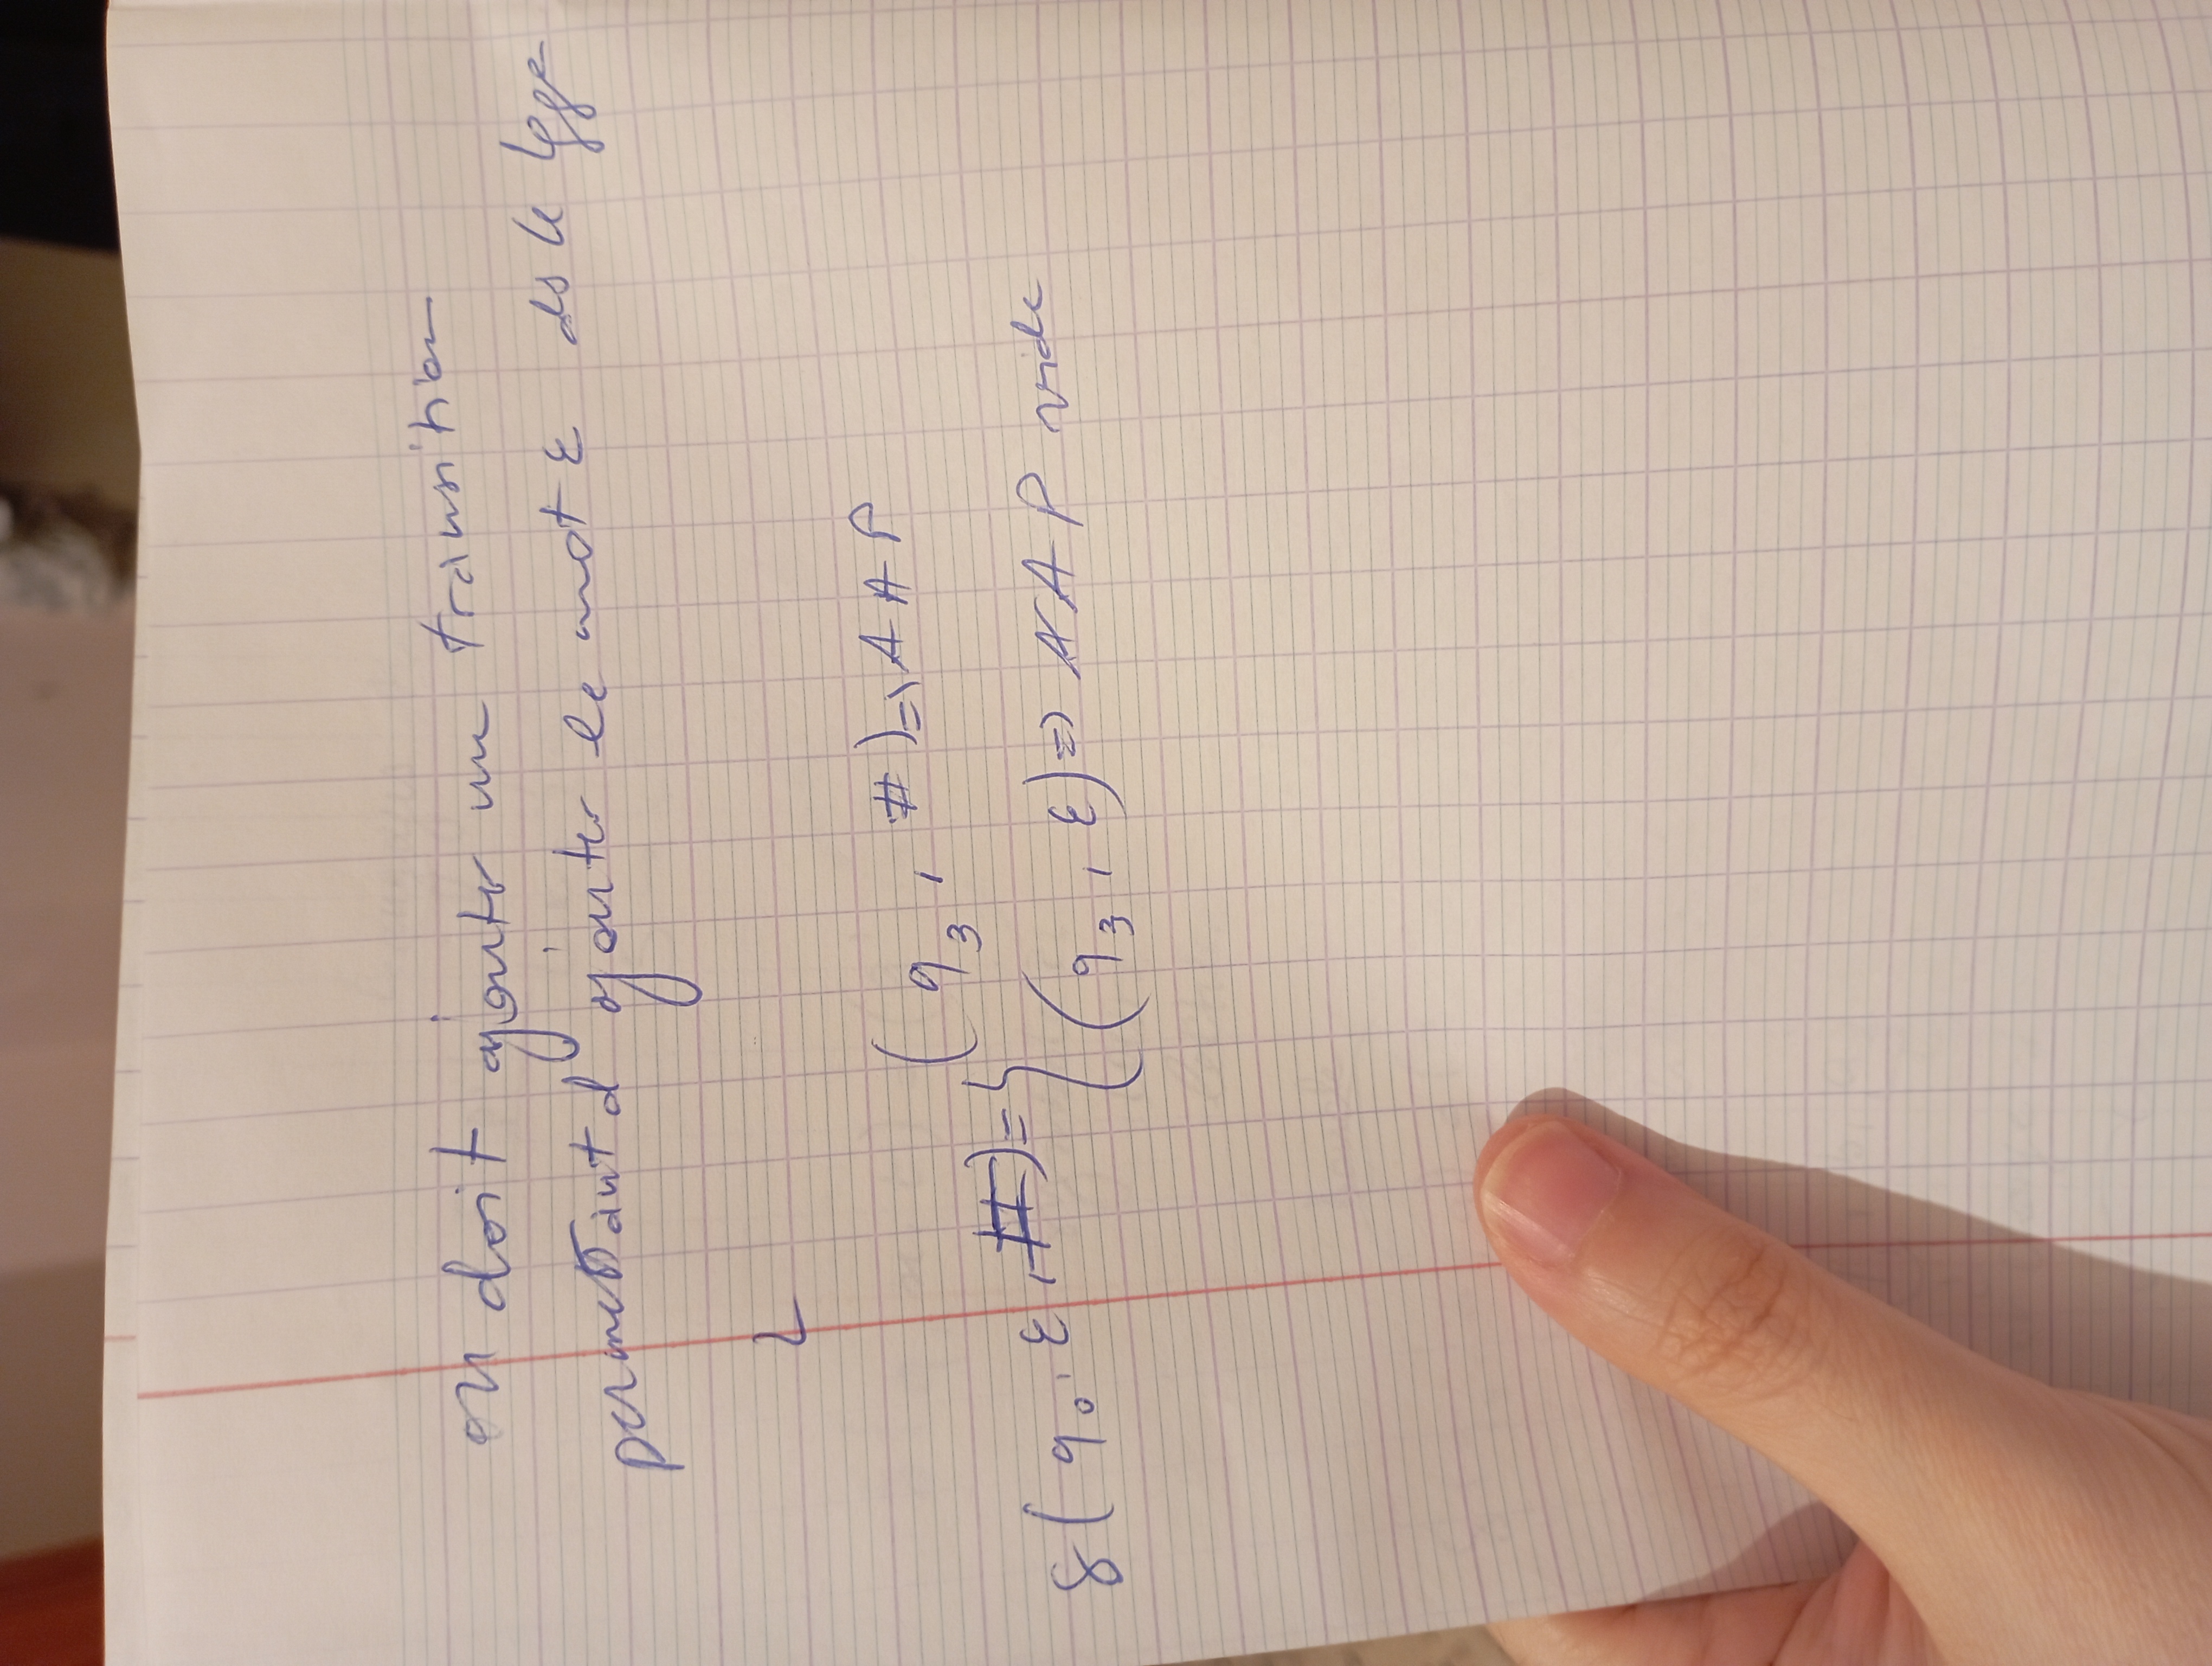 on doit ajouter un transition
permettant d'ajouter le mot ε ds le lgge
L
(q3, #) => AAP
δ(q0, ε, #) = {
(q3, ε) => AAP vide